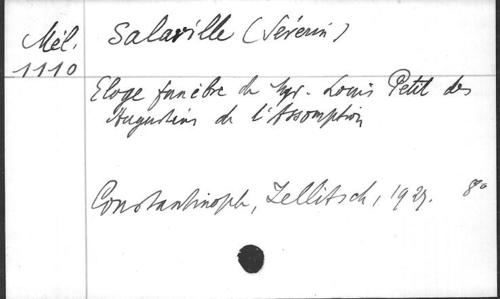 Mél. Salaville (Séverin)
1110
Eloge funèbre de Mgr. Louis Petit des
Augustins de l'Assomption
Constantinople, Zellitsch, 1927. 8°